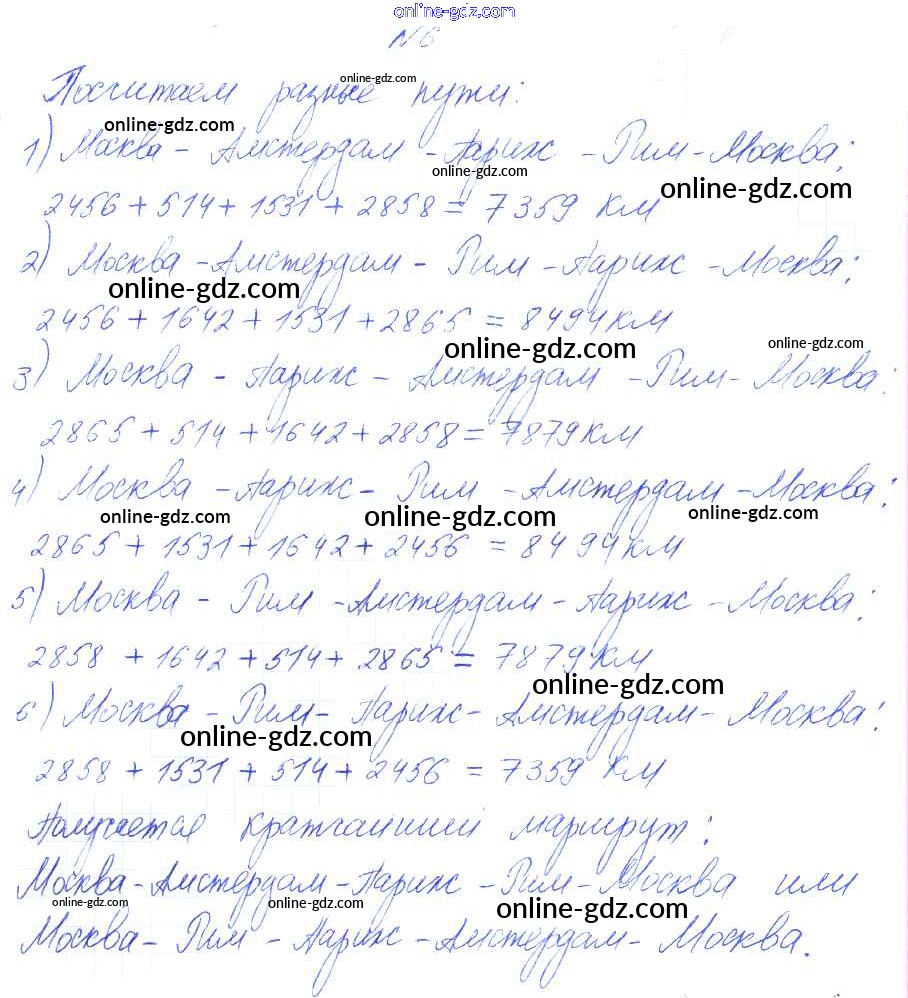 online-gdz.com
№6
Посчитаем разные пути:
online-gdz.com
online-gdz.com
1) Москва - Амстердам - Париж - Рим - Москва:
online-gdz.com
online-gdz.com
2456 + 514 + 1531 + 2858 = 7359 км
2) Москва - Амстердам - Рим - Париж - Москва:
online-gdz.com
2456 + 1642 + 1531 + 2865 = 8494 км
online-gdz.com
online-gdz.com
3) Москва - Париж - Амстердам - Рим - Москва:
2865 + 514 + 1642 + 2858 = 7879 км
4) Москва - Париж - Рим - Амстердам - Москва:
online-gdz.com
online-gdz.com
online-gdz.com
2865 + 1531 + 1642 + 2456 = 8494 км
5) Москва - Рим - Амстердам - Париж - Москва:
2858 + 1642 + 514 + 2865 = 7879 км
online-gdz.com
6) Москва - Рим - Париж - Амстердам - Москва:
online-gdz.com
2858 + 1531 + 514 + 2456 = 7359 км
Получается кратчайший маршрут:
Москва - Амстердам - Париж - Рим - Москва или
online-gdz.com
online-gdz.com
online-gdz.com
Москва - Рим - Париж - Амстердам - Москва.